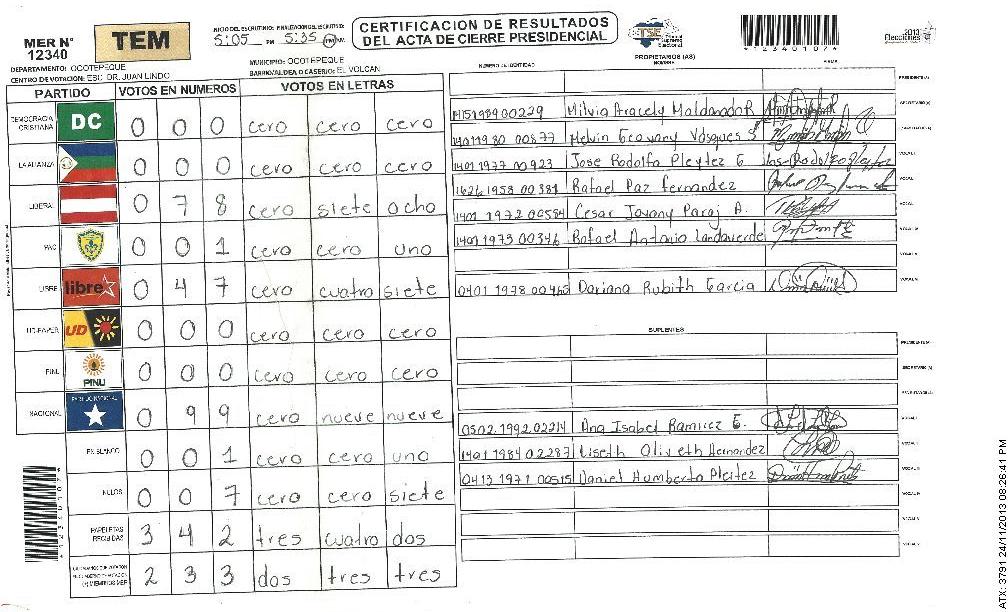 MER Nº
12340
TEM
INICIO DEL ESCRUTINIO: FINALIZACION DEL ESCRUTINIO:
5:05 PM 5:35 PM
CERTIFICACION DE RESULTADOS
DEL ACTA DE CIERRE PRESIDENCIAL
TSE
Tribunal Supremo Electoral
*12340107*
2013
Elecciones
DEPARTAMENTO: OCOTEPEQUE
MUNICIPIO: OCOTEPEQUE
CENTRO DE VOTACION: EBC. DR. JUAN LINDO
BARRIO/ALDEA O CASERIO: EL VOLCAN
PARTIDO VOTOS EN NUMEROS VOTOS EN LETRAS
DEMOCRACIA CRISTIANA DC 0 0 0 cero cero cero
LA ALIANZA 0 0 0 cero cero cero
LIBERAL 0 7 8 cero siete ocho
PAC 0 0 1 cero cero uno
LIBRE libre 0 4 7 cero cuatro siete
UD-FAPER UD 0 0 0 cero cero cero
PINU PINU 0 0 0 cero cero cero
NACIONAL PARTIDO NACIONAL 0 9 9 cero nueve nueve
EN BLANCO 0 0 1 cero cero uno
NULOS 0 0 7 cero cero siete
PAPELETAS RECIBIDAS 3 4 2 tres cuatro dos
2 3 3 dos tres tres
*12340107*
PROPIETARIOS (AS)
NUMERO DE IDENTIDAD NOMBRE FIRMA
PRESIDENTE(A)
Milvia Aracely Maldonado R SECRETARIO(A)
1401 1980 00877 Melvin Geovany Vasques
1401 1977 00923 Jose Rodolfo Pleytez G VOCAL I
1626 1958 00381 Rafael Paz fernandez VOCAL
1401 1972 00584 Cesar Jovany A. VOCAL
1401 1973 00346 Rafael Antonio Landaverde
0401 1978 00463 Dariana Rubith Garcia VOCAL V
SUPLENTES
PRESIDENTE(A)
SECRETARIO (A)
0502.1992.02214 Ana Isabel Ramirez G. VOCAL I
1401 1984 02287 Liseth Oliveth Hernandez
0413 1971 00515 Daniel Humberto Pleitez
VOCAL V
ATX: 3791 24/11/2013 08:26:41 PM